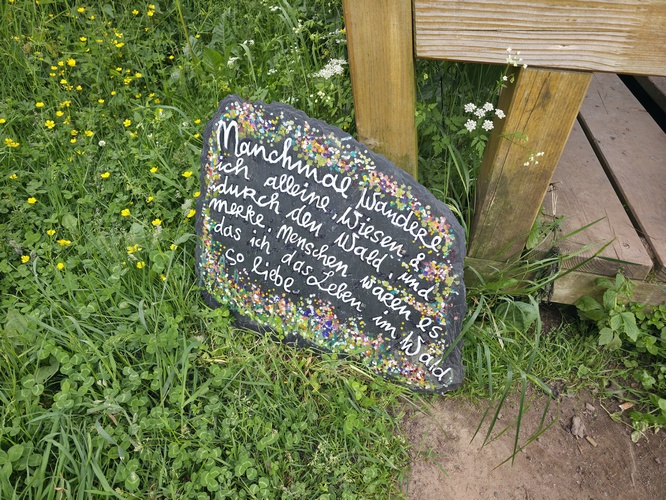 Manchmal wandere
ich alleine Wiesen &
durch den Wald, und
merke, Menschen waren es
das ich das Leben im Wald
so liebe